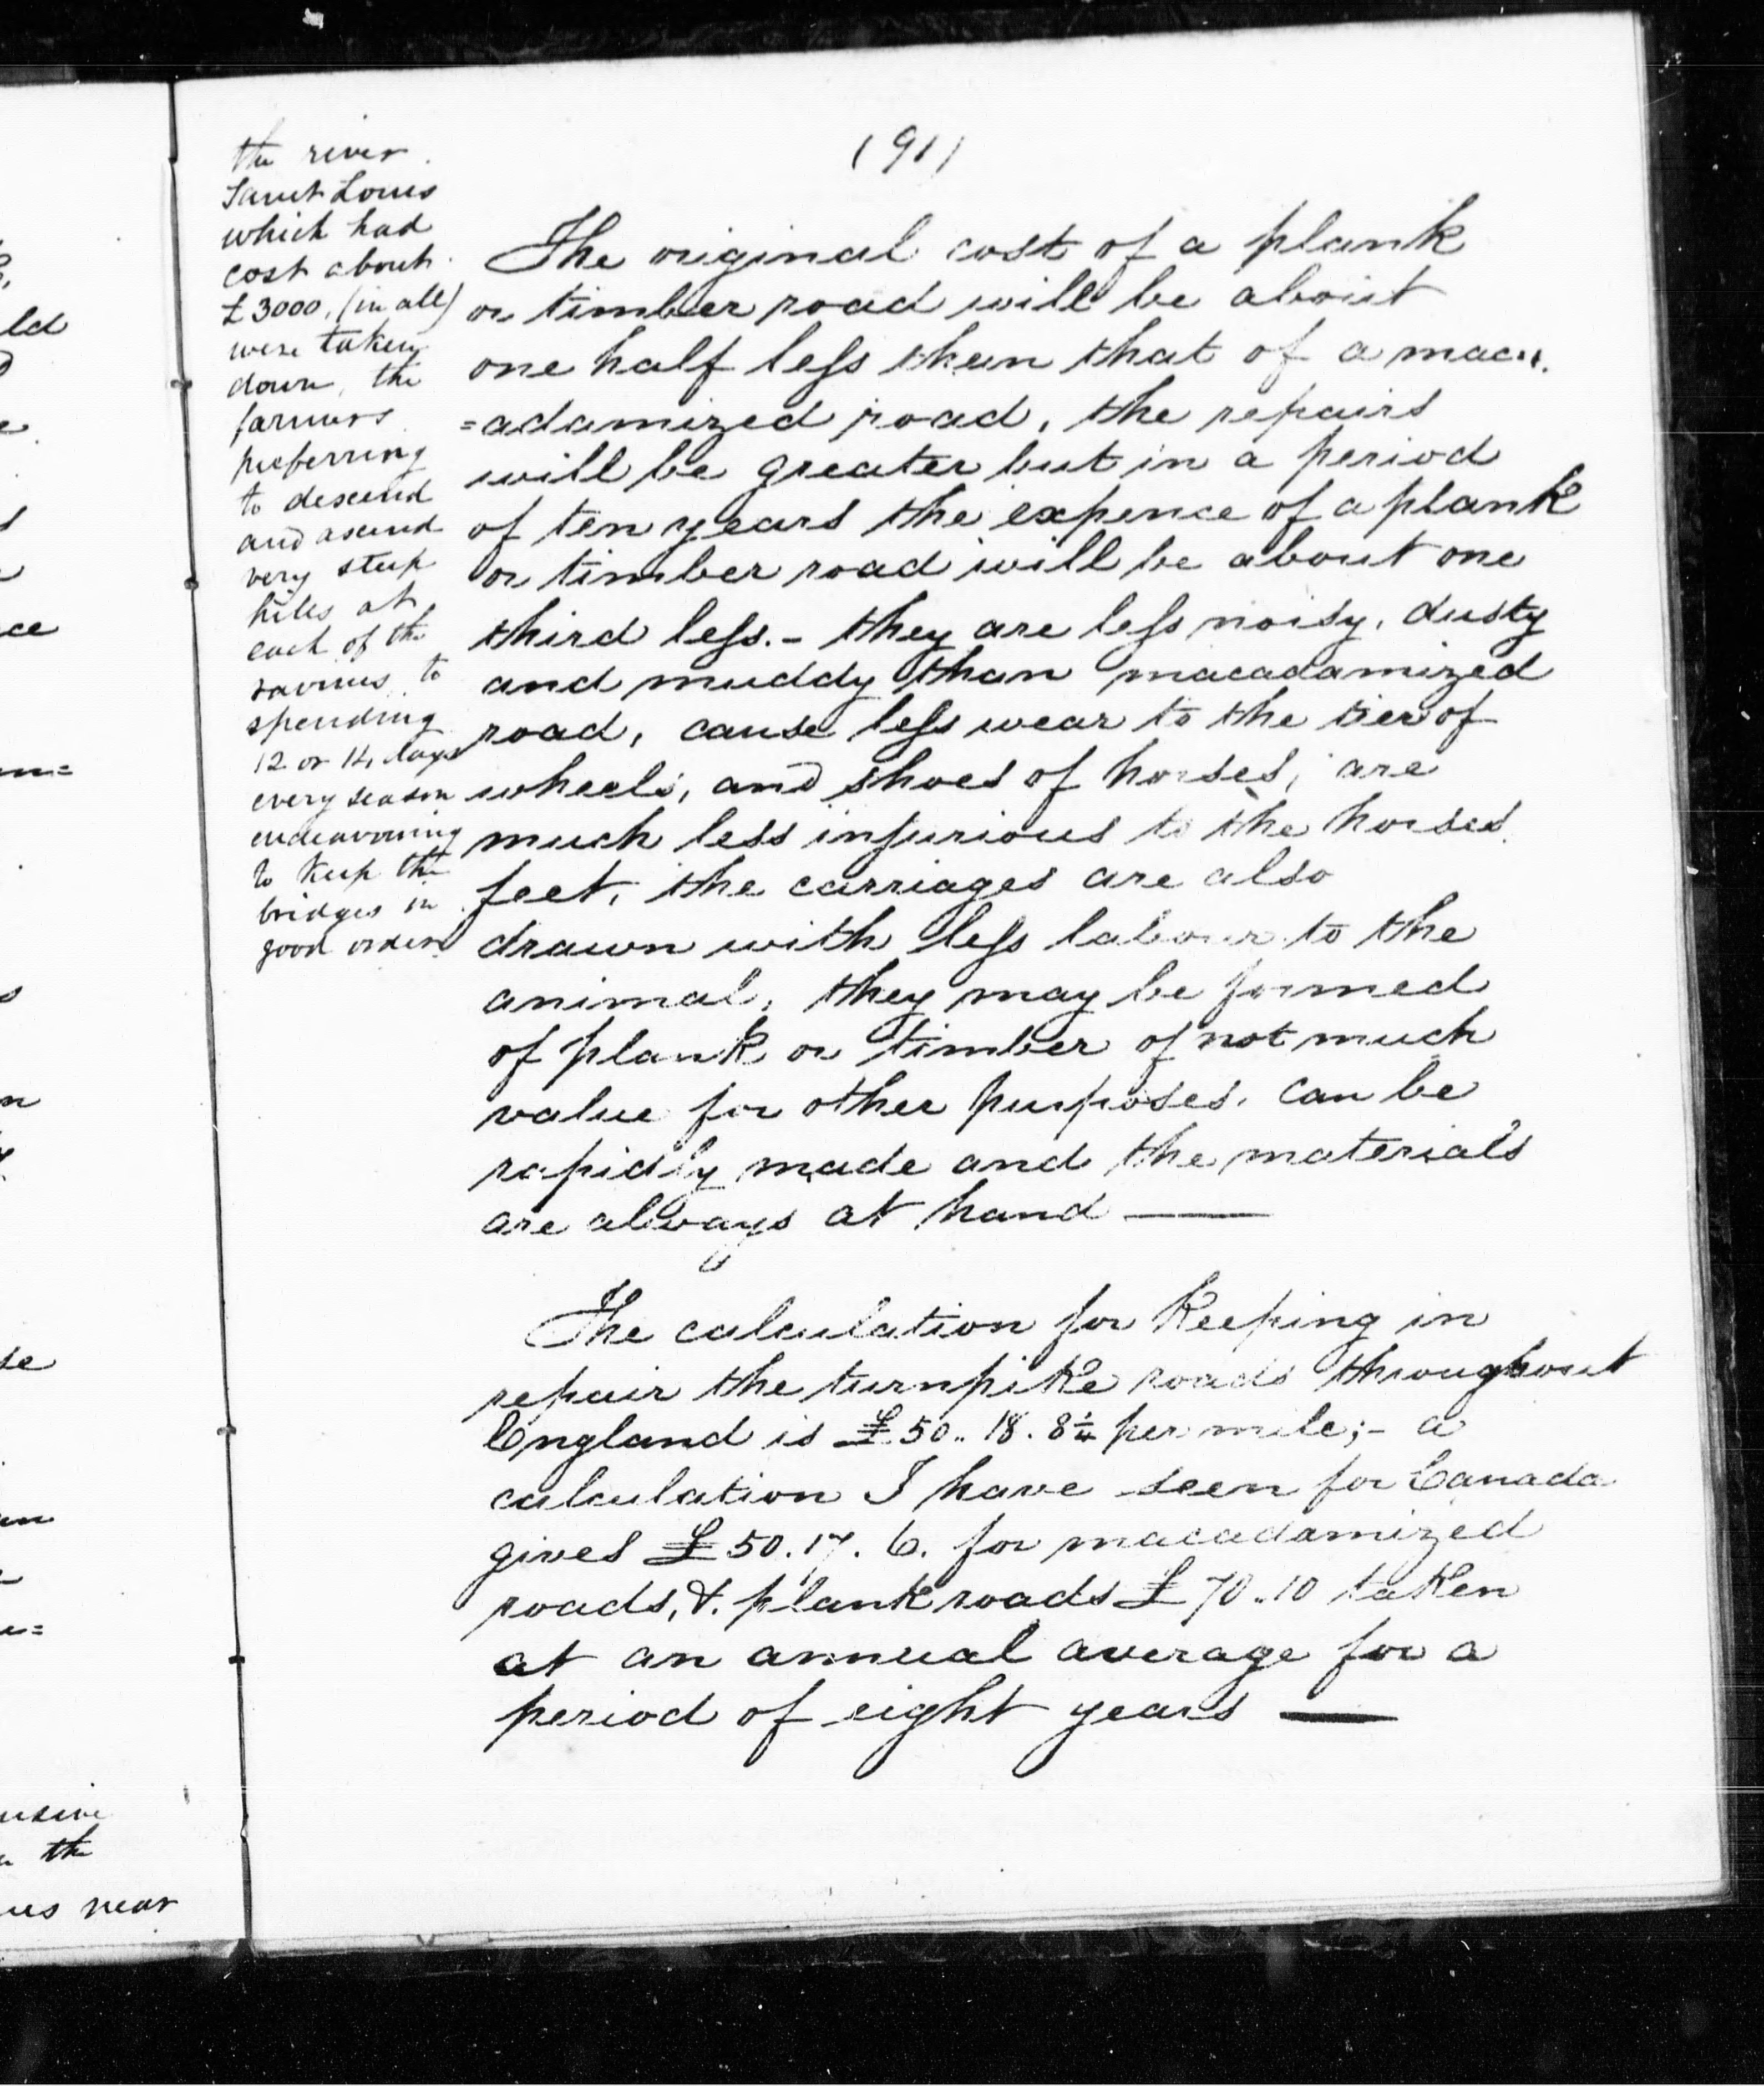 (91)
the river
Saint Louis
which had
cost about
£3000, (in all)
were taken
down, the
farmers
preferring
to descend
and ascend
very steep
hills at
each of the
ravines to
spending
12 or 14 days
every season
endeavouring
to keep the
bridges in
good order
The original cost of a plank
or timber road will be about
one half less than that of a mac
=adamized road, the repairs
will be greater but in a period
of ten years the expence of a plank
or timber road will be about one
third less. - they are less noisy, dusty
and muddy than macadamized
road, cause less wear to the tier of
wheels, and shoes of horses, are
much less injurious to the horses
feet, the carriages are also
drawn with less labour to the
animal, they may be formed
of plank or timber of not much
value for other purposes, can be
rapidly made and the materials
are always at hand ——
The calculation for keeping in
repair the turnpike roads throughout
England is £50.. 18. 8¼ per mile; - a
calculation I have seen for Canada
gives £50. 17. 6. for macadamized
roads, &. plank roads £70..10 taken
at an annual average for a
period of eight years ——
ld
e
ce
m=
n
se
usive
the
near